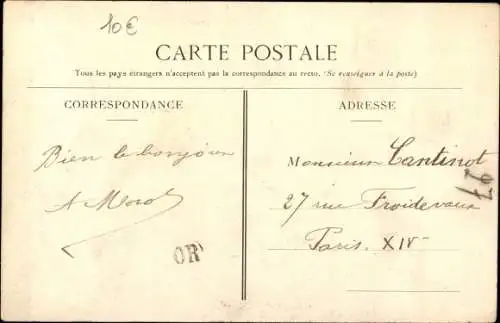 10€
CARTE POSTALE
Tous les pays étrangers n'acceptent pas la correspondance au recto. (Se renseigner à la poste)
CORRESPONDANCE
Bien le bonjour
OR
ADRESSE
Monsieur Cantinot
27 rue Froidevaux
Paris. XIV